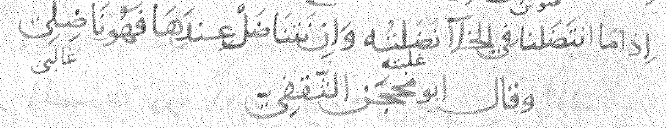 إذا ما انتضلنا في الخزا نضلته وان نتناضل عندها فهو ناضلى
علبته غالبى
وقال ابو محجن الثقفى